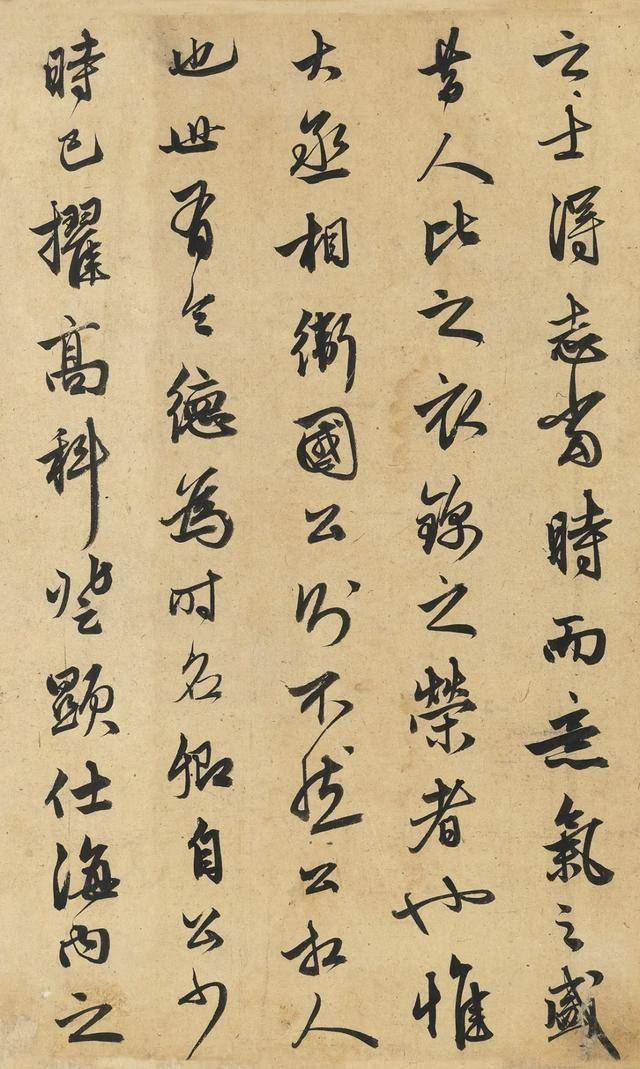 之士得志當時而意氣之盛
昔人比之衣錦之榮者也惟
大丞相衛國公則不然公相人
也世有令德為時名卿自公少
時已擢高科登顯仕海內之